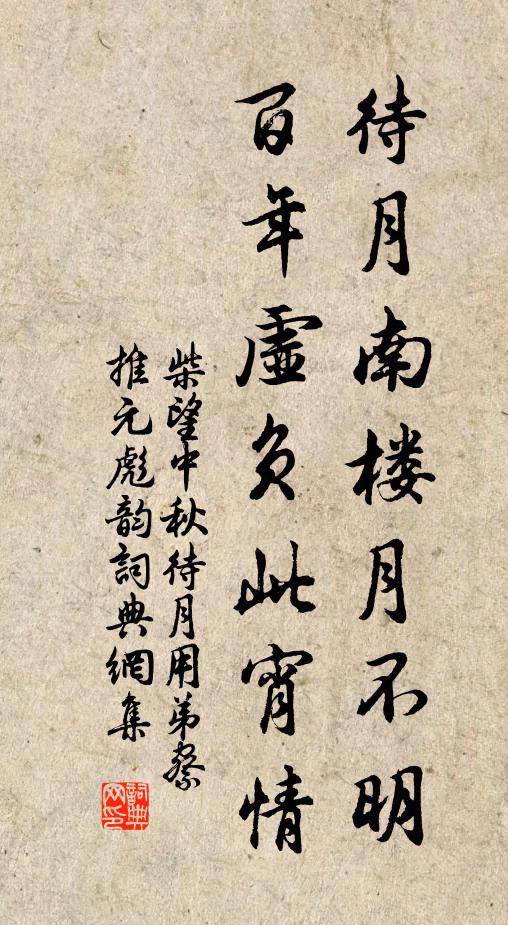 待月南楼月不明
百年虚负此宵情
柴望中秋待月用弟察
推元彪韵詞典網集
詞典网印